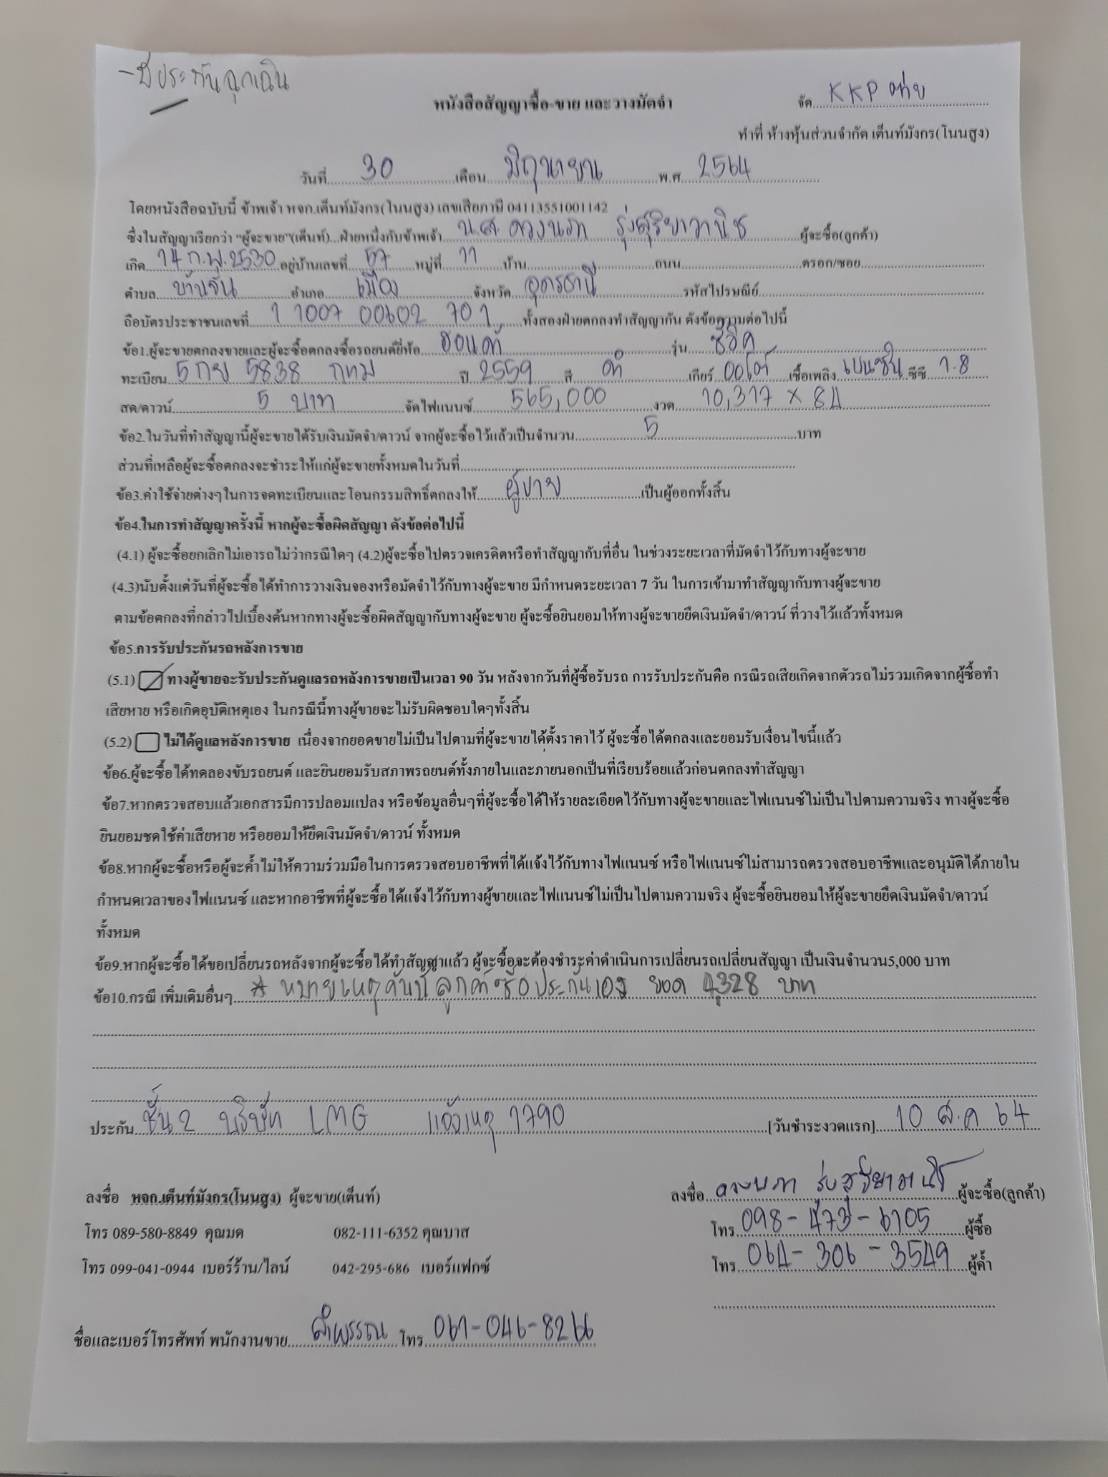 - มีประกันฉุกเฉิน
หนังสือสัญญาซื้อ-ขาย และวางมัดจำ
จัด KKP
ทำที่ ห้างหุ้นส่วนจำกัด เต็นท์มังกร(โนนสูง)
วันที่ 30 เดือน มิถุนายน พ.ศ 2564
โดยหนังสือฉบับนี้ ข้าพเจ้า หจก.เต็นท์มังกร(โนนสูง) เลขเสียภาษี 04113551001142
ซึ่งในสัญญาเรียกว่า "ผู้จะขาย"(เต็นท์)...ฝ่ายหนึ่งกับข้าพเจ้า น.ส. ดวงนภา รุ่งสุริยาวานิช ผู้จะซื้อ(ลูกค้า)
เกิด 14 ก.พ. 2530 อยู่บ้านเลขที่ 57 หมู่ที่ 11 บ้าน ถนน ตรอก/ซอย
ตำบล บ้านจั่น อำเภอ เมือง จังหวัด อุดรธานี รหัสไปรษณีย์
ถือบัตรประชาชนเลขที่ 1 1007 00602 70 1 ทั้งสองฝ่ายตกลงทำสัญญากัน ดังข้อความต่อไปนี้
ข้อ1.ผู้จะขายตกลงขายและผู้จะซื้อตกลงซื้อรถยนต์ยี่ห้อ ฮอนด้า รุ่น ซีวิค
ทะเบียน 5 กย 5838 กทม ปี 2559 สี ดำ เกียร์ ออโต้ เชื้อเพลิง เบนซิน ซีซี 1.8
สด/ดาวน์ 5 บาท จัดไฟแนนซ์ 565,000 งวด 10,317 x 84
ข้อ2.ในวันที่ทำสัญญานี้ผู้จะขายได้รับเงินมัดจำ/ดาวน์ จากผู้จะซื้อไว้แล้วเป็นจำนวน 5 บาท
ส่วนที่เหลือผู้จะซื้อตกลงจะชำระให้แก่ผู้จะขายทั้งหมดในวันที่
ข้อ3.ค่าใช้จ่ายต่างๆในการจดทะเบียนและโอนกรรมสิทธิ์ตกลงให้ ผู้ขาย เป็นผู้ออกทั้งสิ้น
ข้อ4.ในการทำสัญญาครั้งนี้ หากผู้จะซื้อผิดสัญญา ดังข้อต่อไปนี้
(4.1) ผู้จะซื้อยกเลิกไม่เอารถไม่ว่ากรณีใดๆ (4.2)ผู้จะซื้อไปตรวจเครดิตหรือทำสัญญากับที่อื่น ในช่วงระยะเวลาที่มัดจำไว้กับทางผู้จะขาย
(4.3)นับตั้งแต่วันที่ผู้จะซื้อได้ทำการวางเงินจองหรือมัดจำไว้กับทางผู้จะขาย มีกำหนดระยะเวลา 7 วัน ในการเข้ามาทำสัญญากับทางผู้จะขาย
ตามข้อตกลงที่กล่าวไปเบื้องต้นหากทางผู้จะซื้อผิดสัญญากับทางผู้จะขาย ผู้จะซื้อยินยอมให้ทางผู้จะขายยึดเงินมัดจำ/ดาวน์ ที่วางไว้แล้วทั้งหมด
ข้อ5.การรับประกันรถหลังการขาย
(5.1) ทางผู้ขายจะรับประกันดูแลรถหลังการขายเป็นเวลา 90 วัน หลังจากวันที่ผู้ซื้อรับรถ การรับประกันคือ กรณีรถเสียเกิดจากตัวรถไม่รวมเกิดจากผู้ซื้อทำ
เสียหาย หรือเกิดอุบัติเหตุเอง ในกรณีนี้ทางผู้ขายจะไม่รับผิดชอบใดๆทั้งสิ้น
(5.2) ไม่ได้ดูแลหลังการขาย เนื่องจากยอดขายไม่เป็นไปตามที่ผู้จะขายได้ตั้งราคาไว้ ผู้จะซื้อได้ตกลงและยอมรับเงื่อนไขนี้แล้ว
ข้อ6.ผู้จะซื้อได้ทดลองขับรถยนต์ และยินยอมรับสภาพรถยนต์ทั้งภายในและภายนอกเป็นที่เรียบร้อยแล้วก่อนตกลงทำสัญญา
ข้อ7.หากตรวจสอบแล้วเอกสารมีการปลอมแปลง หรือข้อมูลอื่นๆที่ผู้จะซื้อได้ให้รายละเอียดไว้กับทางผู้จะขายและไฟแนนซ์ไม่เป็นไปตามความจริง ทางผู้จะซื้อ
ยินยอมชดใช้ค่าเสียหาย หรือยอมให้ยึดเงินมัดจำ/ดาวน์ ทั้งหมด
ข้อ8.หากผู้จะซื้อหรือผู้จะค้ำไม่ให้ความร่วมมือในการตรวจสอบอาชีพที่ได้แจ้งไว้กับทางไฟแนนซ์ หรือไฟแนนซ์ไม่สามารถตรวจสอบอาชีพและอนุมัติได้ภายใน
กำหนดเวลาของไฟแนนซ์ และหากอาชีพที่ผู้จะซื้อได้แจ้งไว้กับทางผู้ขายและไฟแนนซ์ไม่เป็นไปตามความจริง ผู้จะซื้อยินยอมให้ผู้จะขายยึดเงินมัดจำ/ดาวน์
ทั้งหมด
ข้อ9.หากผู้จะซื้อได้ขอเปลี่ยนรถหลังจากผู้จะซื้อได้ทำสัญญาแล้ว ผู้จะซื้อจะต้องชำระค่าดำเนินการเปลี่ยนรถเปลี่ยนสัญญา เป็นเงินจำนวน5,000 บาท
ข้อ10.กรณี เพิ่มเติมอื่นๆ * หมายเหตุคันนี้ลูกค้าซื้อประกันเอง ยอด 4,328 บาท
ประกัน ชั้น 2 บริษัท LMG แจ้งเหตุ 1790 [วันชำระงวดแรก] 10 ส.ค 64
ลงชื่อ หจก.เต็นท์มังกร(โนนสูง) ผู้จะขาย(เต็นท์)
ลงชื่อ ดวงนภา รุ่งสุริยาวานิช ผู้จะซื้อ(ลูกค้า)
โทร 089-580-8849 คุณมด 082-111-6352 คุณบาส
โทร. 098-473-6105 ผู้ซื้อ
โทร 099-041-0944 เบอร์ร้าน/ไลน์ 042-295-686 เบอร์แฟกซ์
โทร. 064-306-3549 ผู้ค้ำ
ชื่อและเบอร์โทรศัพท์ พนักงานขาย ลำพรรณ โทร 061-046-8266